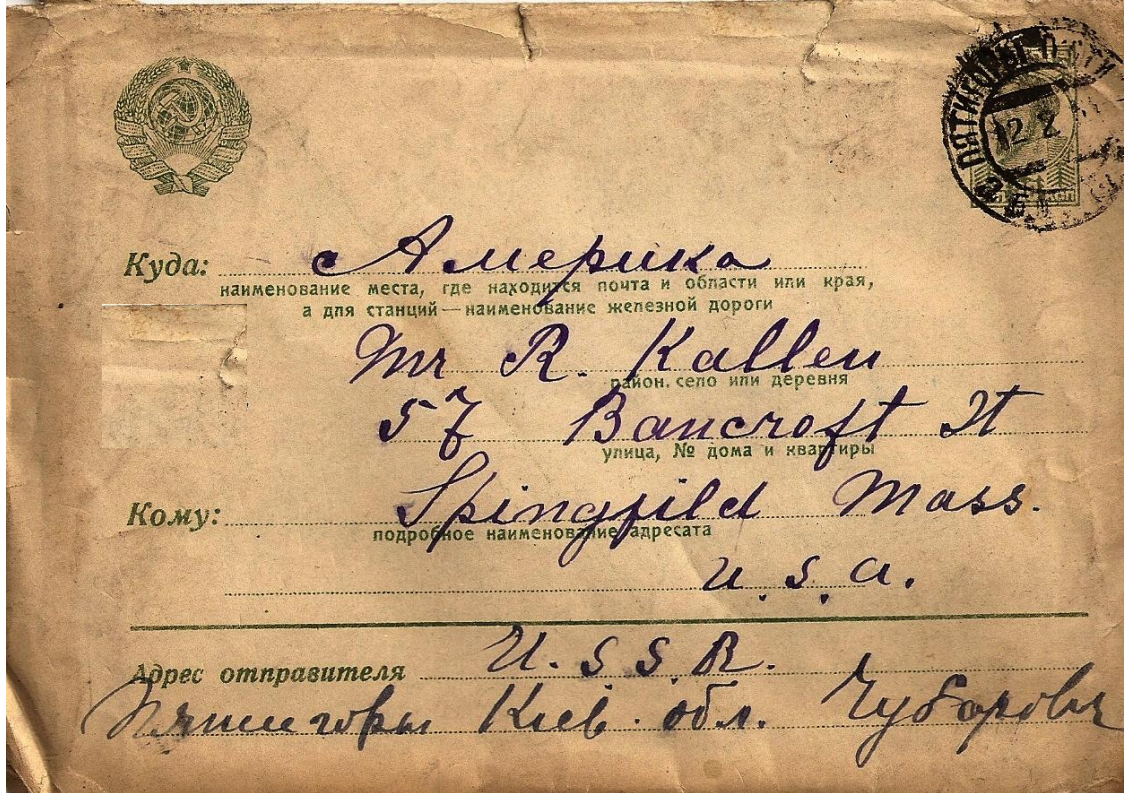 ПЯТИГОРЫ
12 2
Куда: Америка
наименование места, где находится почта и области или края,
а для станций — наименование железной дороги
Mr R. Kallen
район, село или деревня
57 Bancroft St
улица, № дома и квартиры
Кому: Spingfild Mass.
подробное наименование адресата
U.S.A.
Адрес отправителя U.S.S.R.
Пятигоры Киев. обл. Чубаровы